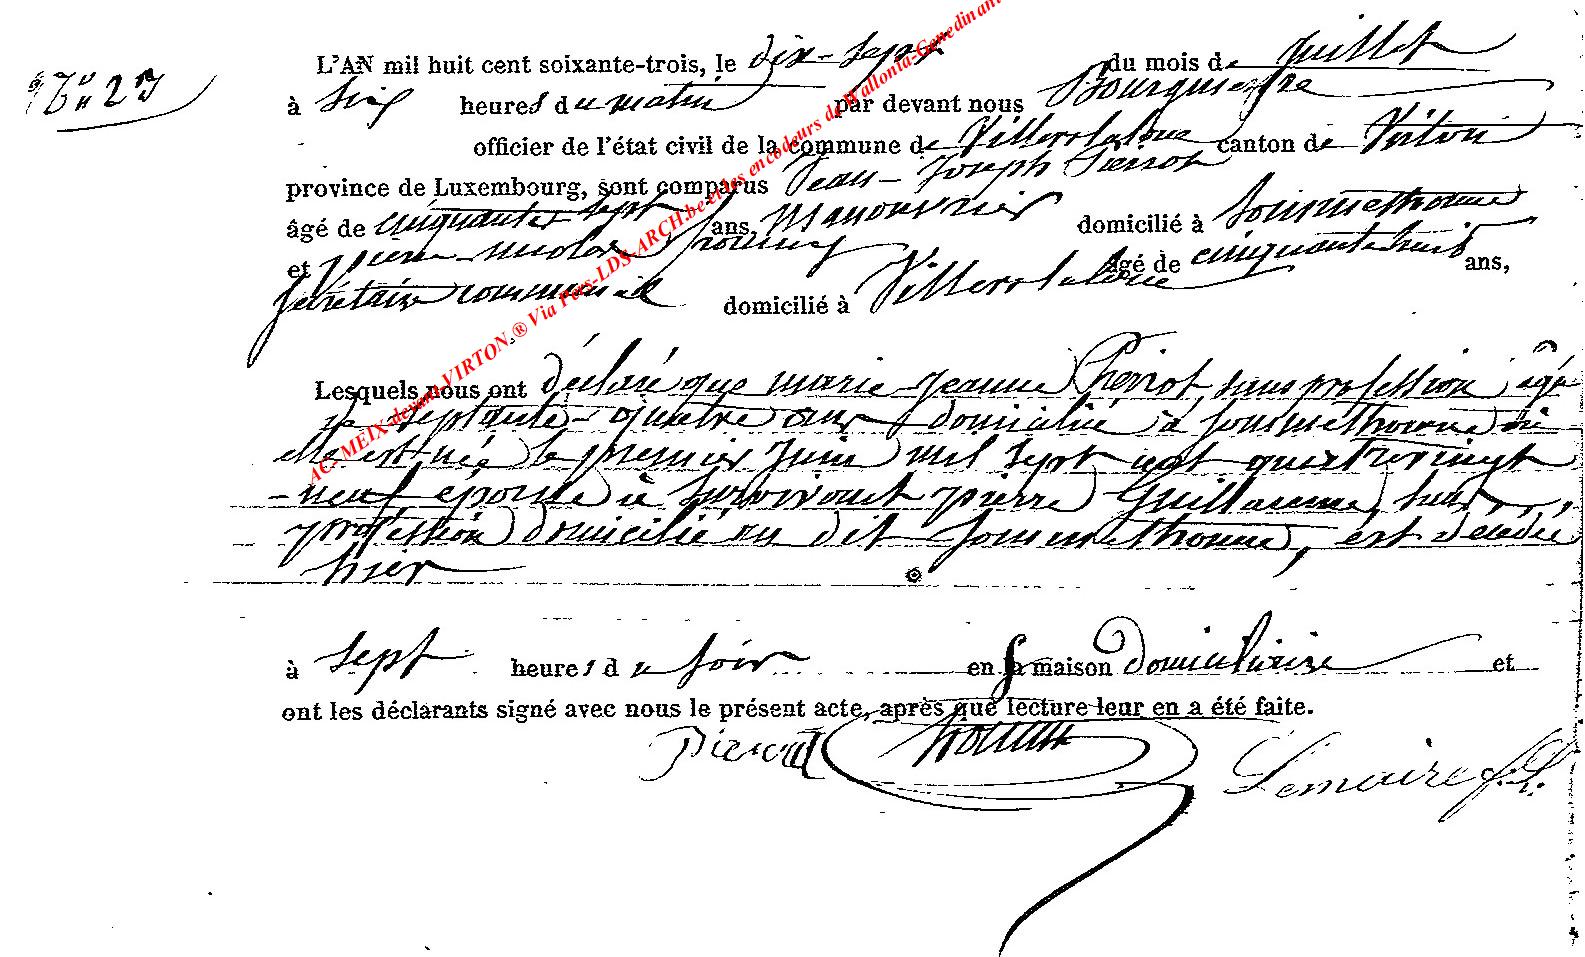 N° 23
L'AN mil huit cent soixante-trois, le dix-sept du mois de juillet
à six heures du matin par devant nous Bourgmestre
officier de l'état civil de la commune de Villerslaloue canton de Virton
province de Luxembourg, sont comparus Jean-Joseph Pierrot
âgé de cinquante sept ans, manouvrier domicilié à Sommethonne
et pierre nicolas âgé de cinquante huit ans,
secrétaire communal domicilié à Villerslaloue
Lesquels nous ont déclaré que marie jeanne Pierrot sans profession âgée
de septante-quatre ans domiciliée à sommethonne où
elle est née le premier Juin mil sept cent quatre vingt
-neuf épouse à survivant pierre Guillaume, sans
profession domicilié au dit sommethonne, est décédée
hier
à sept heures du soir en sa maison domiciliaire et
ont les déclarants signé avec nous le présent acte, après que lecture leur en a été faite.
Pierrot Lemaire f.f.
AC. MEIX devant VIRTON.® Via Pers-LDS-ARCH.be et les encodeurs de Wallonia-Genedinant